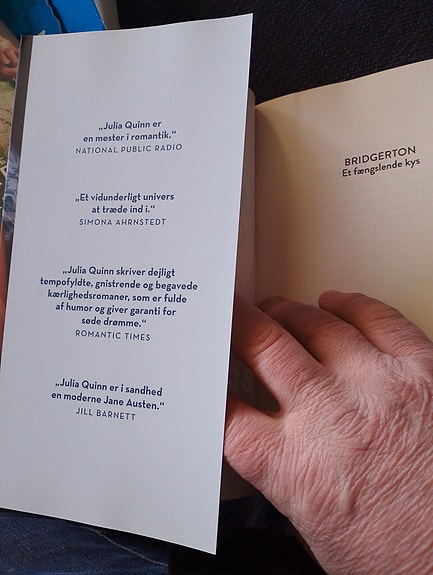 „Julia Quinn er
en mester i romantik.“
NATIONAL PUBLIC RADIO
„Et vidunderligt univers
at træde ind i.“
SIMONA AHRNSTEDT
„Julia Quinn skriver dejligt
tempofyldte, gnistrende og begavede
kærlighedsromaner, som er fulde
af humor og giver garanti for
søde drømme.“
ROMANTIC TIMES
„Julia Quinn er i sandhed
en moderne Jane Austen.“
JILL BARNETT
BRIDGERTON
Et fængslende kys